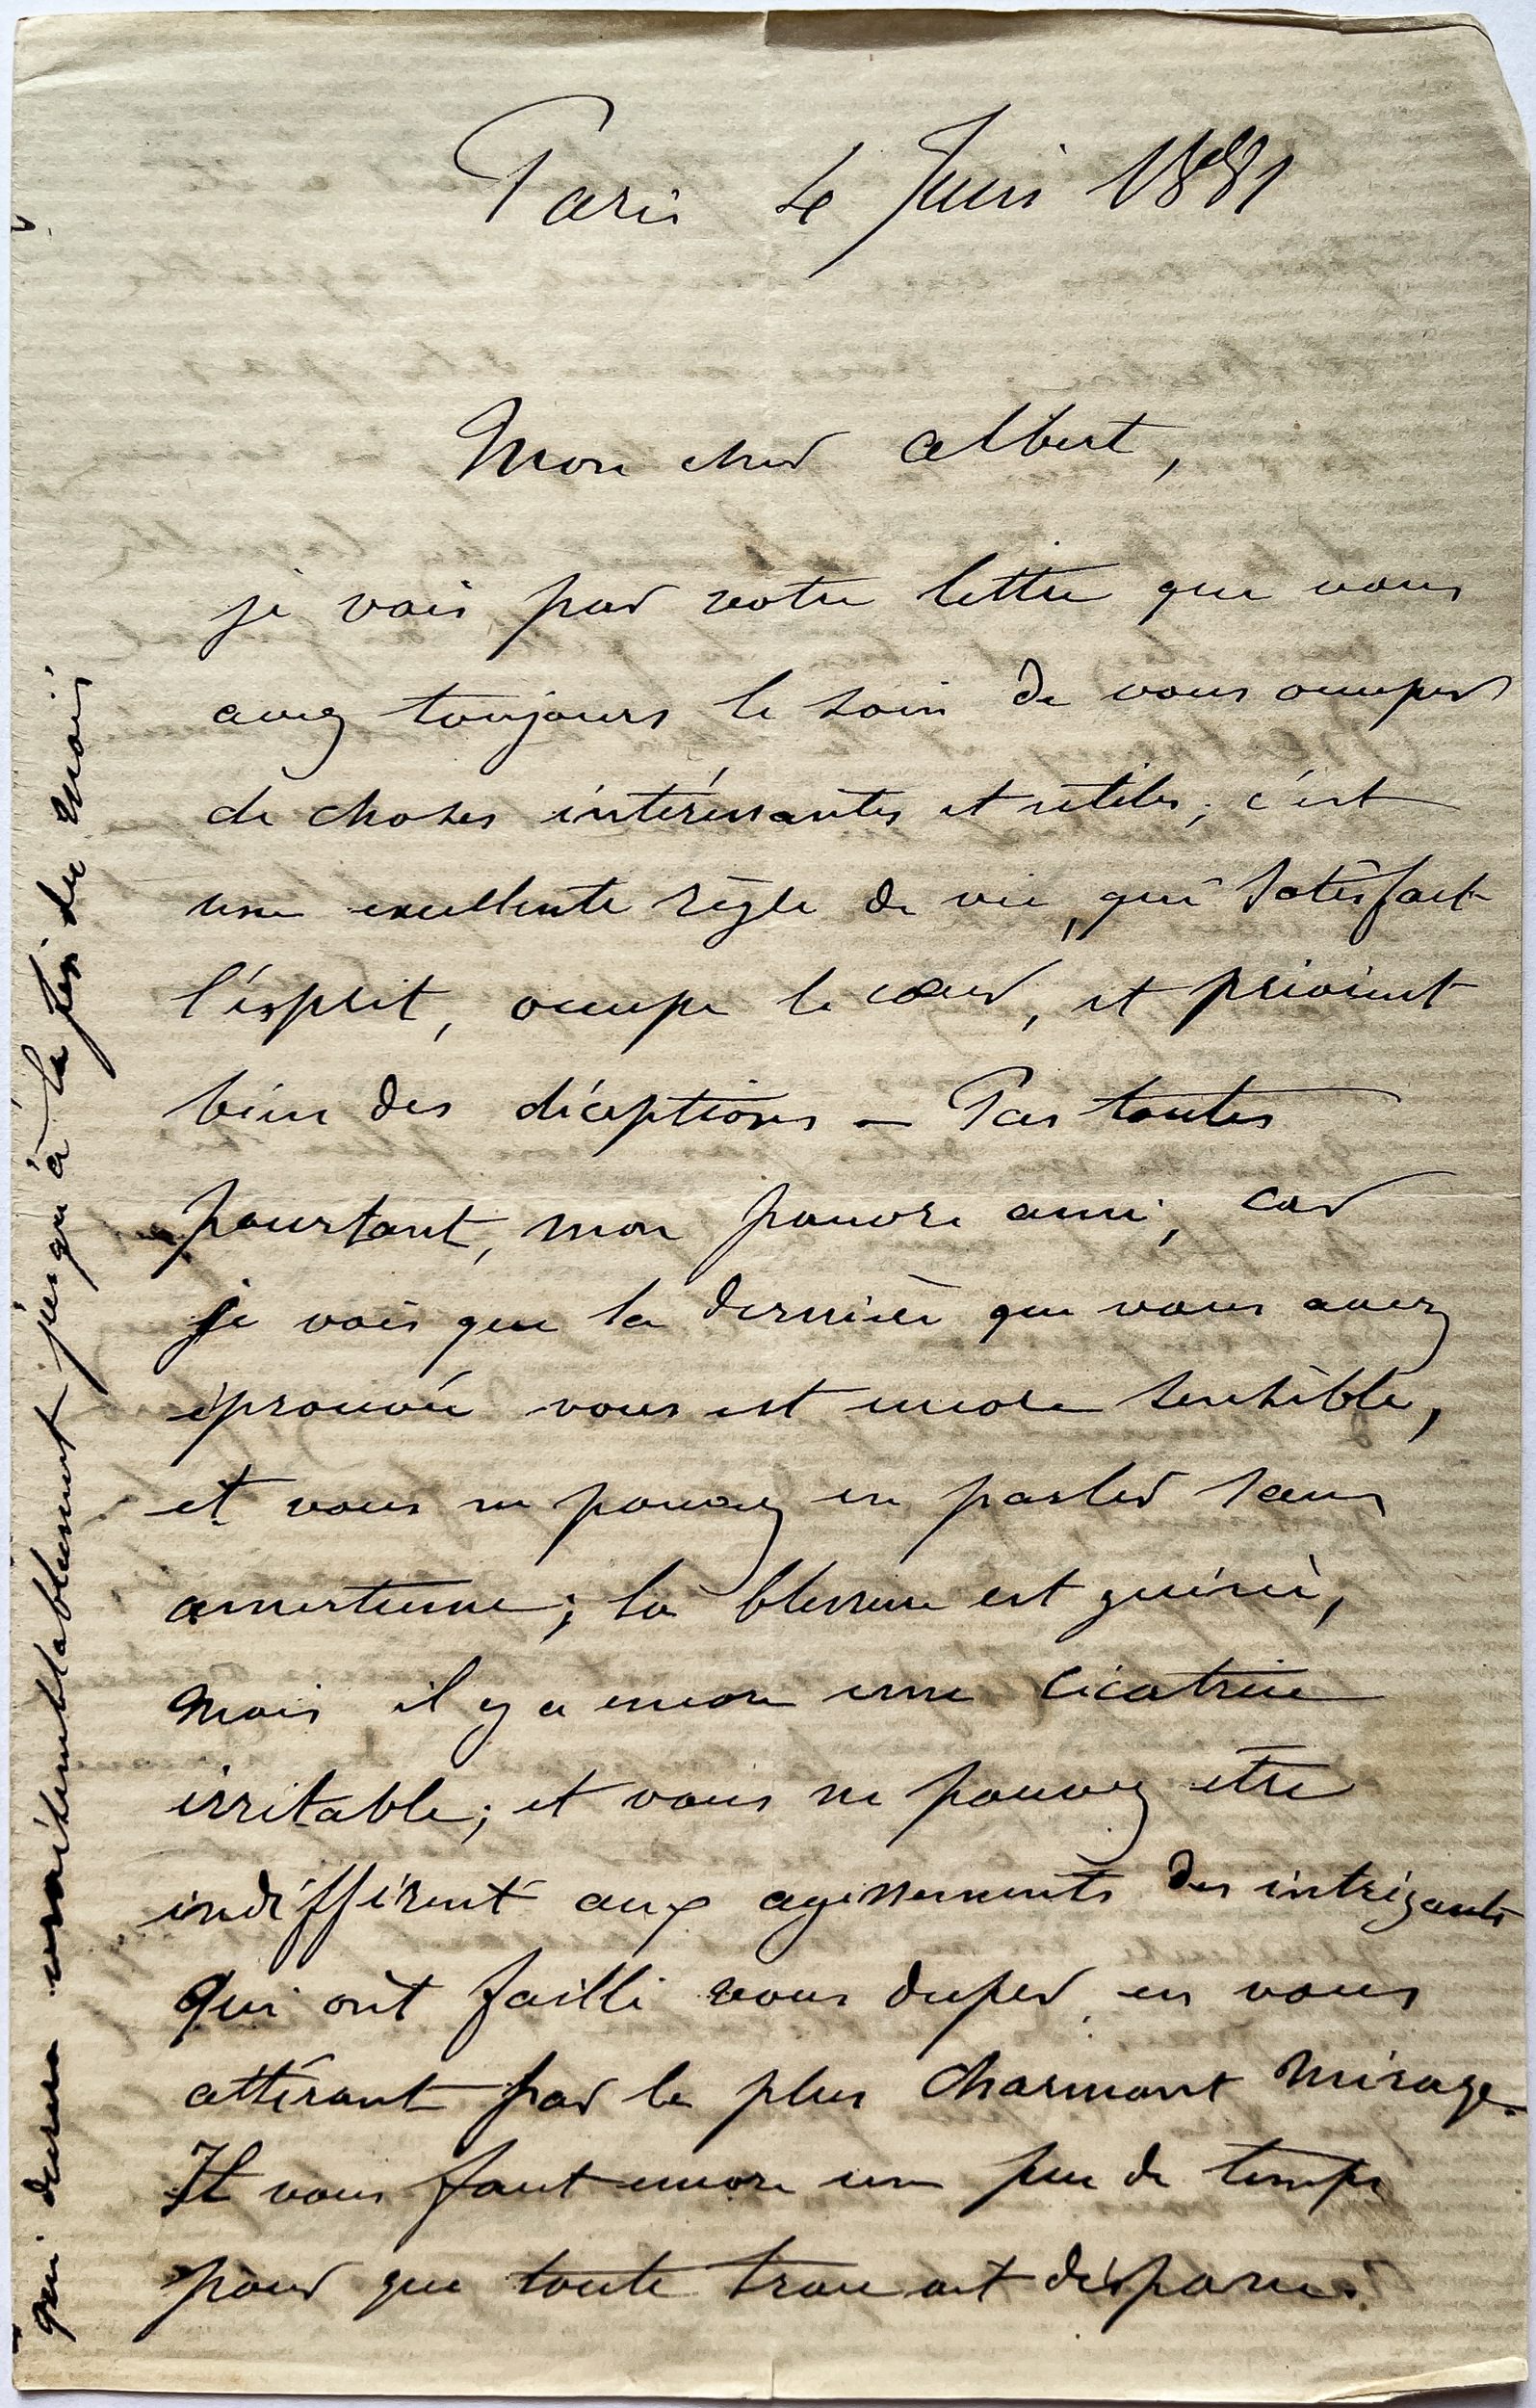 Paris 4 Juin 1881
Mon cher Albert,
je vois par votre lettre que vous
avez toujours le soin de vous occuper
de choses intéressantes et utiles ; c'est
une excellente règle de vie, qui satisfait
l'esprit, occupe le cœur, et prévient
bien des déceptions — Pas toutes
pourtant, mon pauvre ami, car
je vois que la dernière que vous avez
éprouvée vous est encore sensible,
et vous ne pouvez en parler sans
amertume ; la blessure est guérie,
mais il y a encore une cicatrice
irritable ; et vous ne pouvez être
indifférent aux agissements des intrigants
qui ont failli vous duper, en vous
attirant par le plus charmant mirage.
Il vous faut encore un peu de temps
pour que toute trace ait disparu.
qui durera vraisemblablement jusqu'à la fin du mois